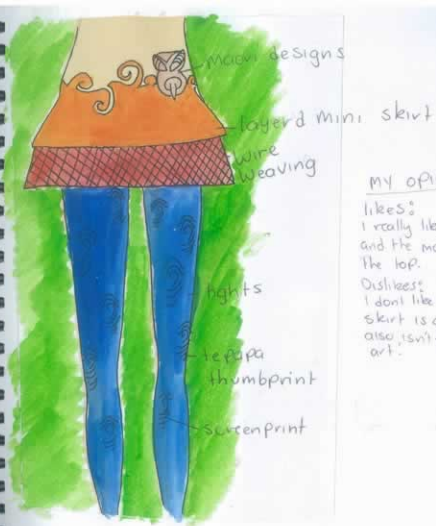 maori designs
layerd mini skirt
wire
weaving
tights
tepapa
thumbprint
screenprint
MY
likes:
I really like
and the
the top.
Dislikes:
I dont like
skirt is
also, isn't
art.